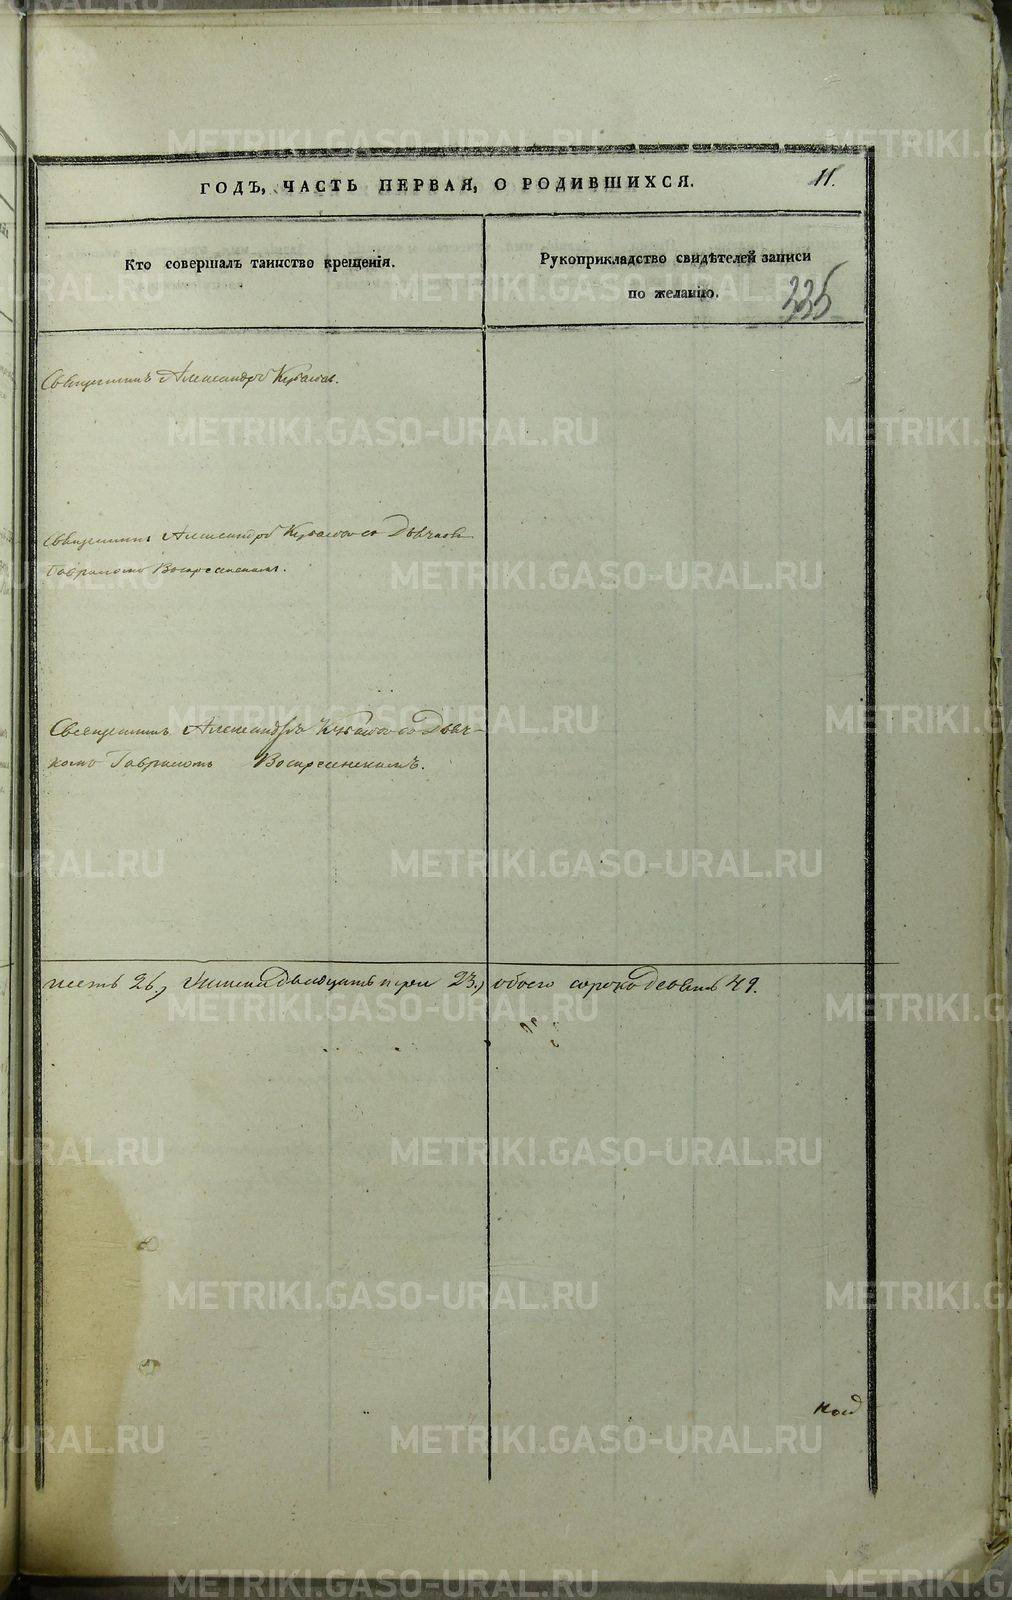 ГОДЪ, ЧАСТЬ ПЕРВАЯ, О РОДИВШИХСЯ.
11.
Кто совершалъ таинство крещенія.
Рукоприкладство свидѣтелей записи
по желанію.
335
Священникъ Александръ
Священникъ Александръ со Дьячкомъ
Гавриломъ Воскресенскимъ.
Священникъ Александръ со Дьяч-
комъ Гавриломъ Воскресенскимъ.
шесть 26, женска двадцать три 23, обоего сорокъ девять 49.
METRIKI.GASO-URAL.RU